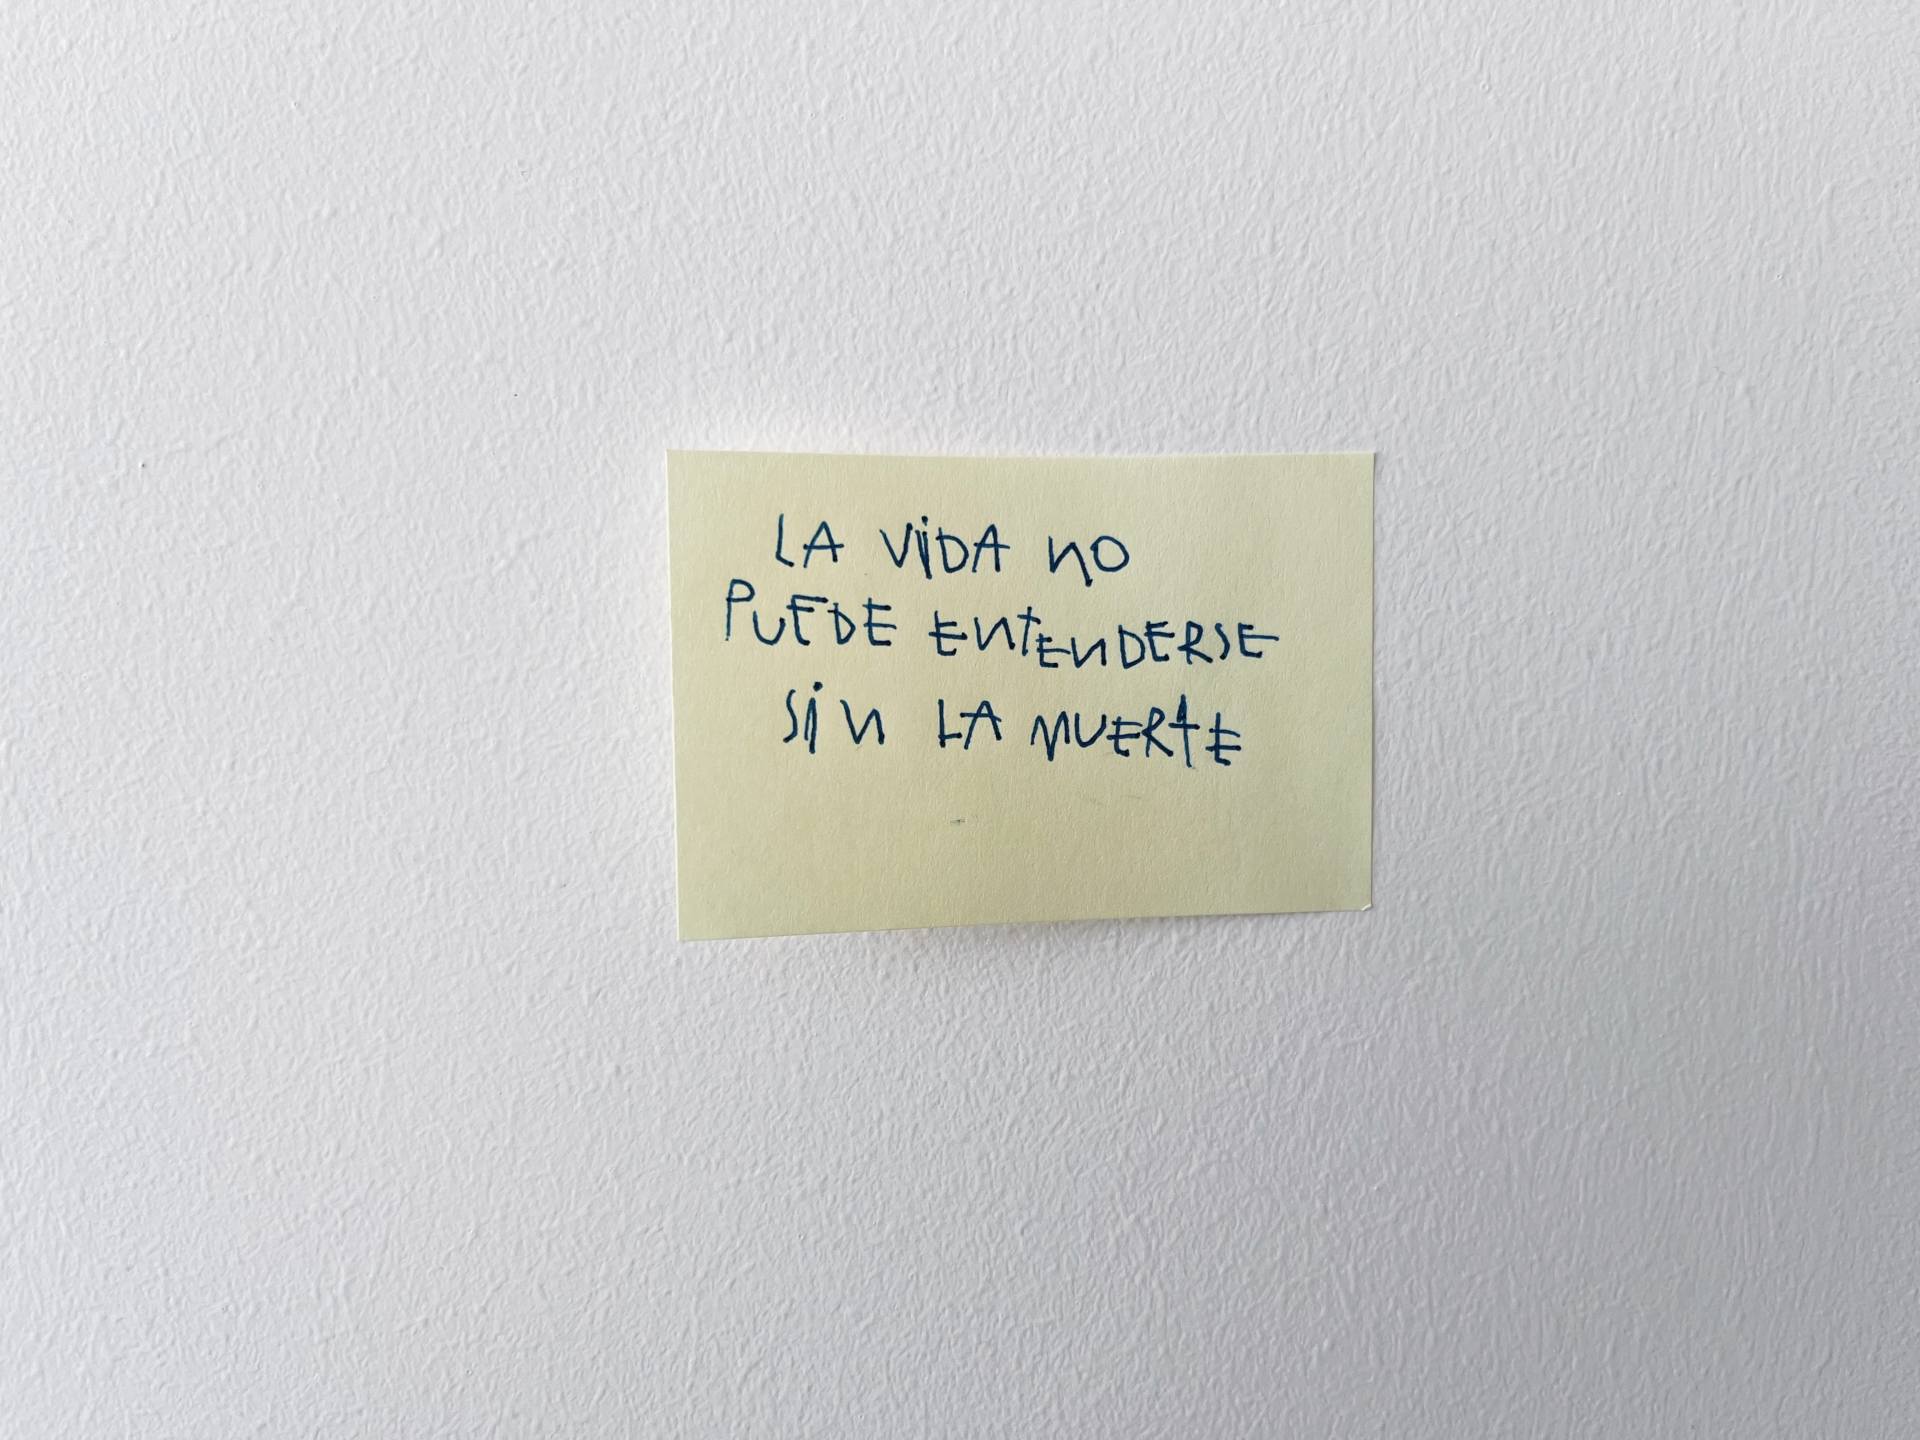 LA ViDA NO
PUEDE ENTENDERSE
SiN LA MUERTE